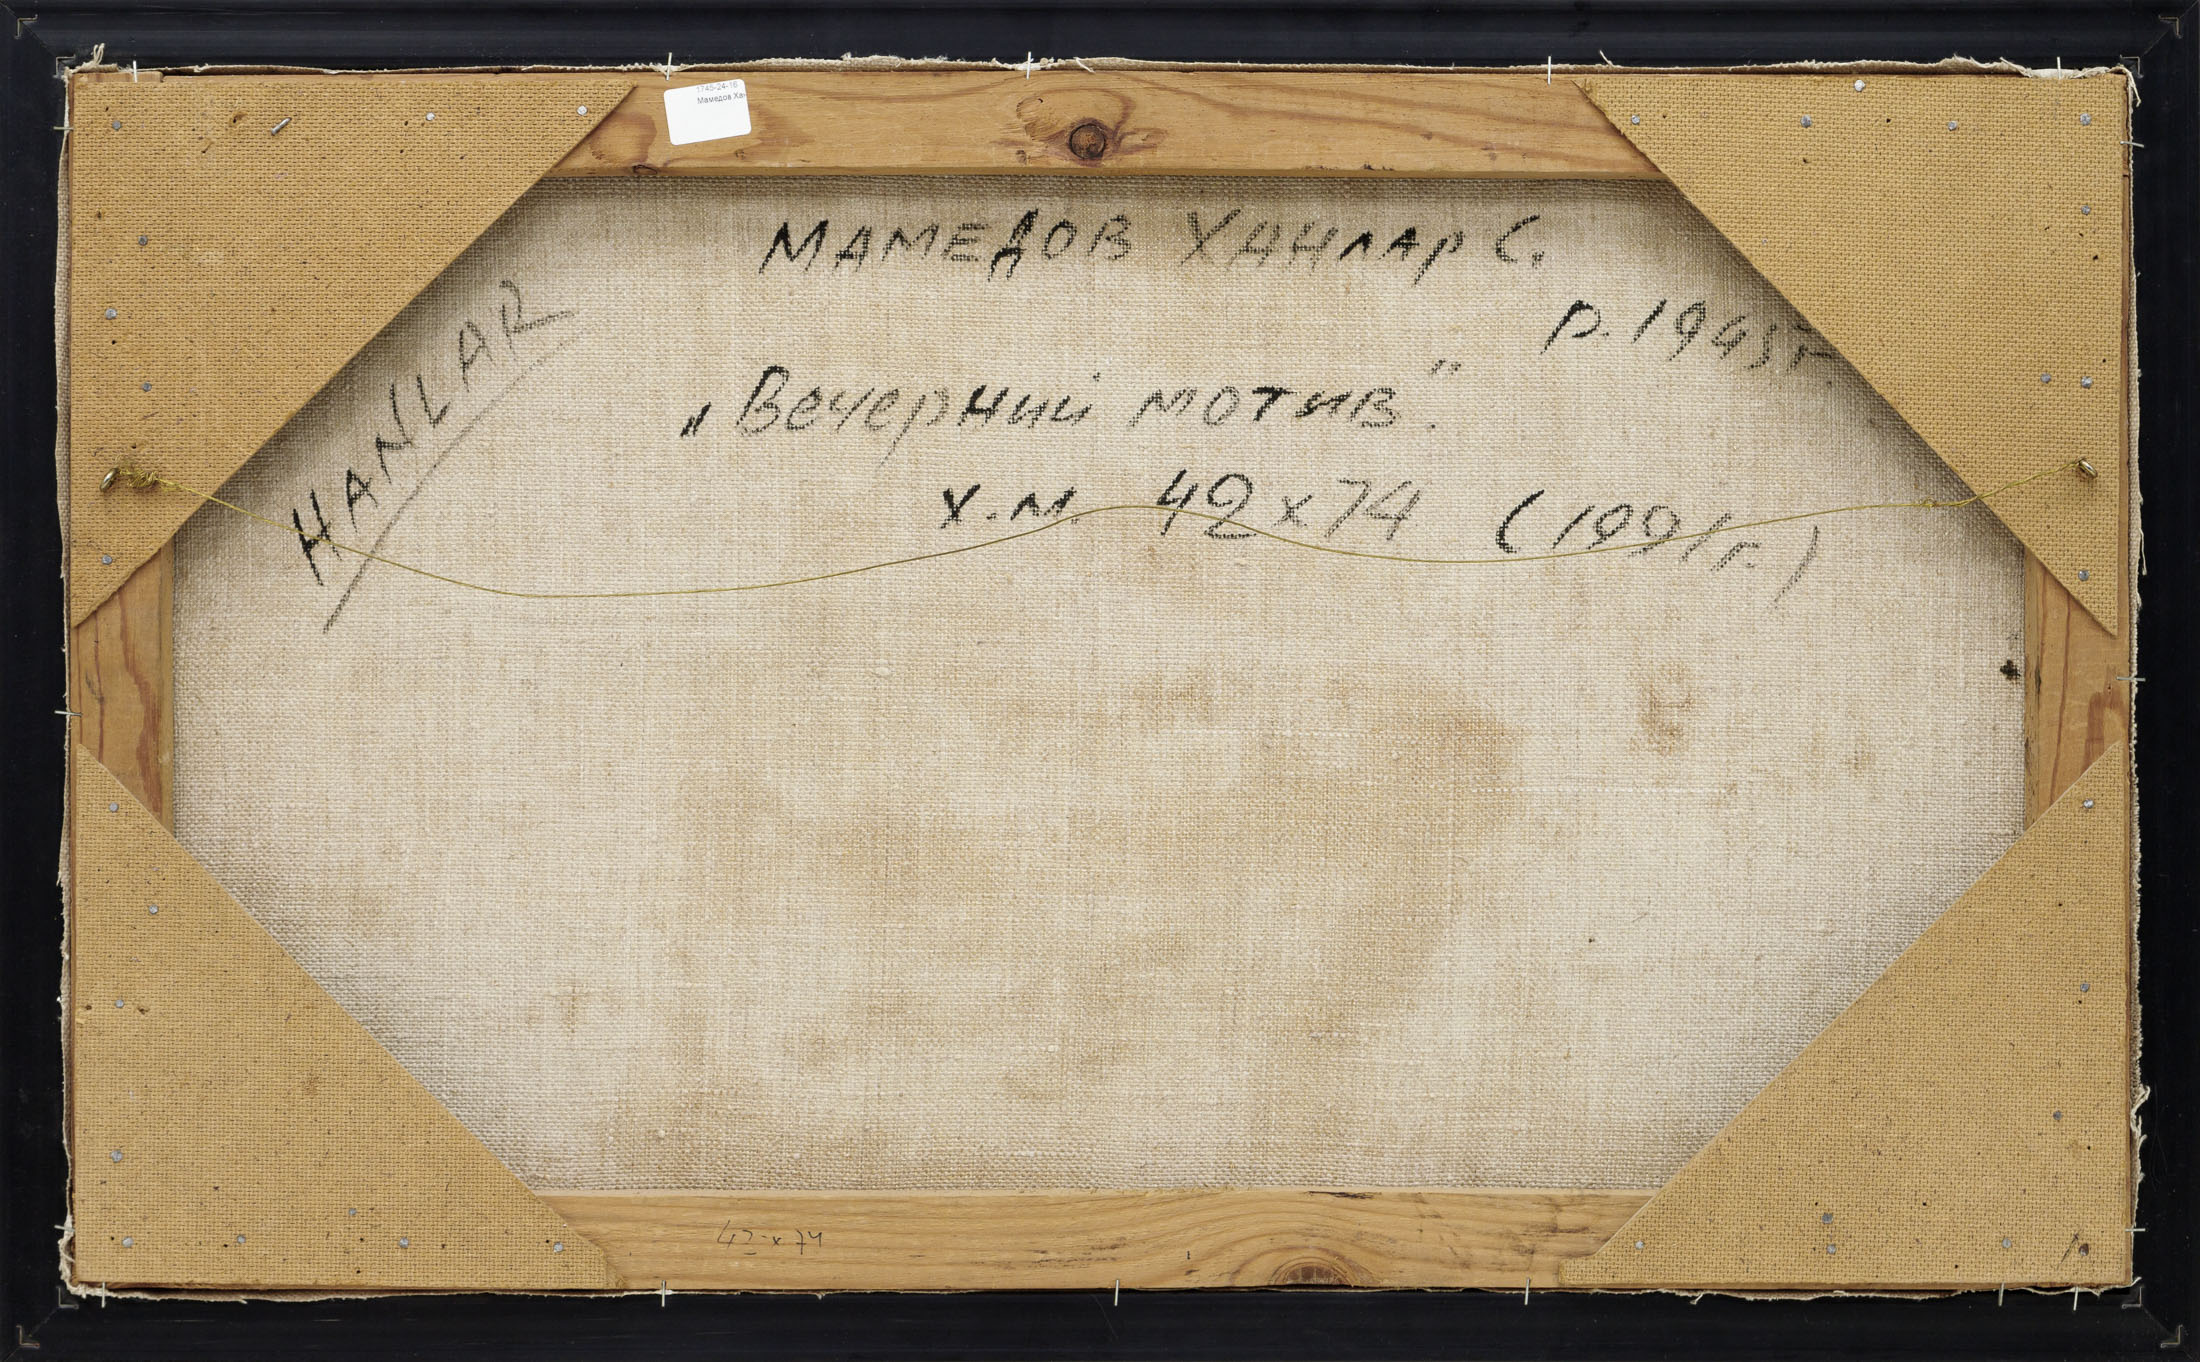 1745-24-16
Мамедов Хан
МАМЕДОВ ХАНЛАР С.
р. 1945г.
HANLAR
„Вечерний мотив".
х.м. 42 x 74 (1991г.)
42 x 74